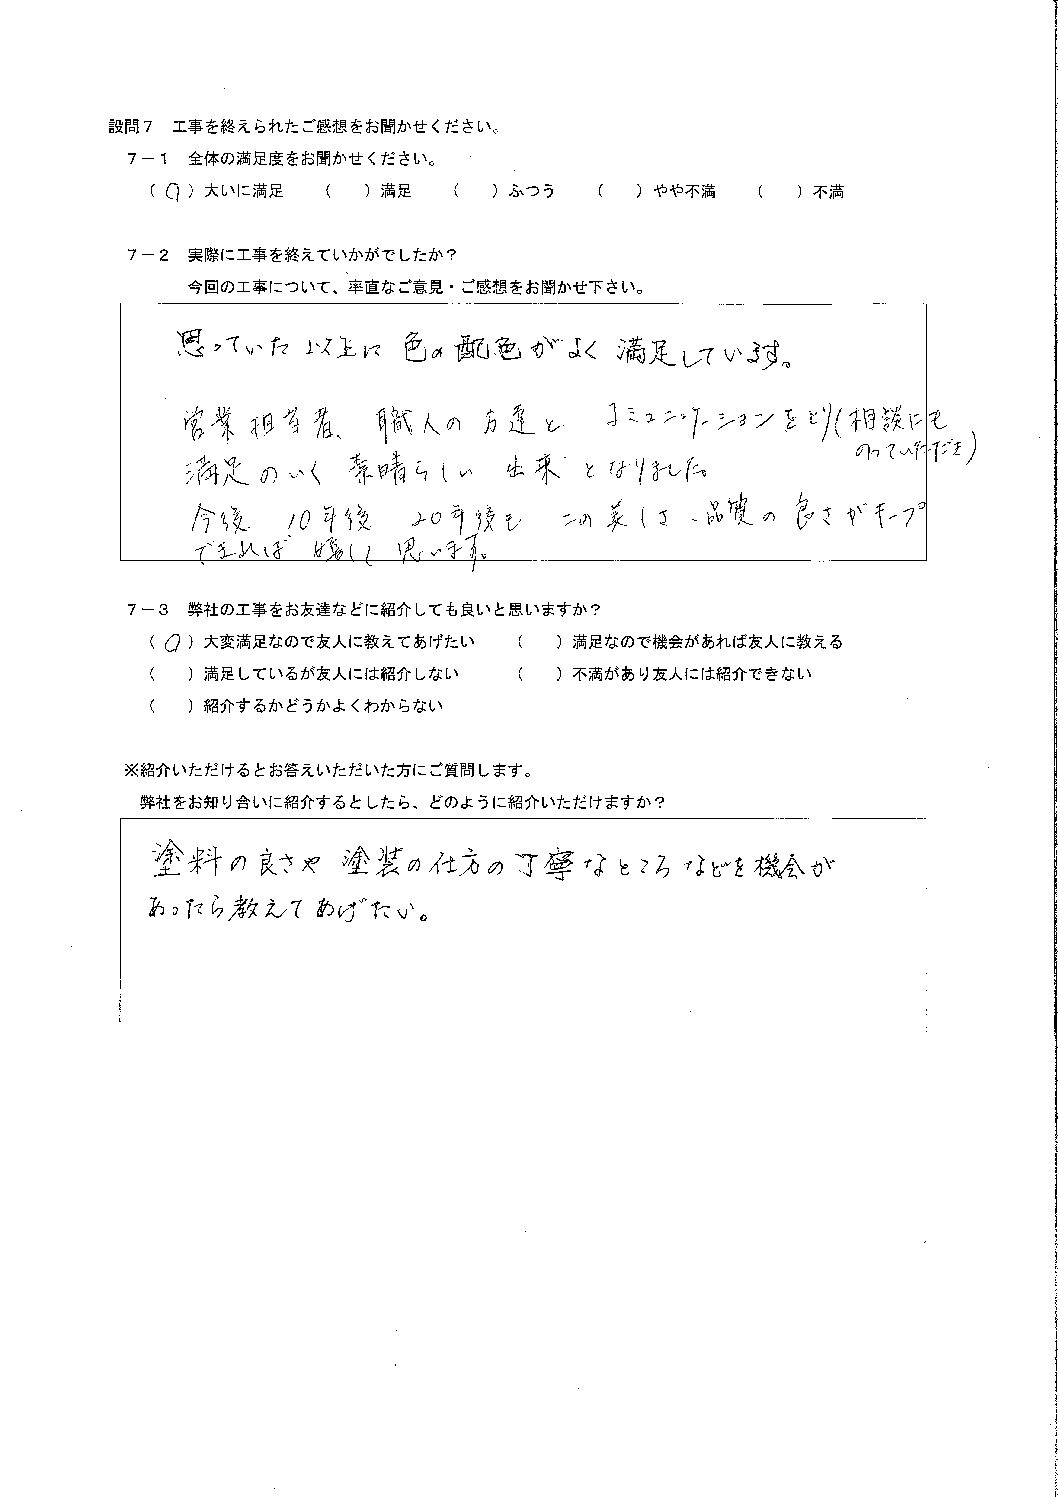 設問７　工事を終えられたご感想をお聞かせください。
７－１　全体の満足度をお聞かせください。
（ ○ ）大いに満足　（　　）満足　（　　）ふつう　（　　）やや不満　（　　）不満
７－２　実際に工事を終えていかがでしたか？
今回の工事について、率直なご意見・ご感想をお聞かせ下さい。
思っていた以上に 色の配色がよく 満足しています。
営業担当者、職人の方達と コミュニケーションをとり(相談にも
のっていただき)
満足のいく 素晴らしい 出来 となりました。
今後 10年後 20年後も この美しさ、品質の良さがキープ
できれば 嬉しく 思います。
７－３　弊社の工事をお友達などに紹介しても良いと思いますか？
（ ○ ）大変満足なので友人に教えてあげたい　（　　）満足なので機会があれば友人に教える
（　　）満足しているが友人には紹介しない　（　　）不満があり友人には紹介できない
（　　）紹介するかどうかよくわからない
※紹介いただけるとお答えいただいた方にご質問します。
弊社をお知り合いに紹介するとしたら、どのように紹介いただけますか？
塗料の良さや 塗装の仕方の丁寧なところ などを機会が
あったら教えてあげたい。